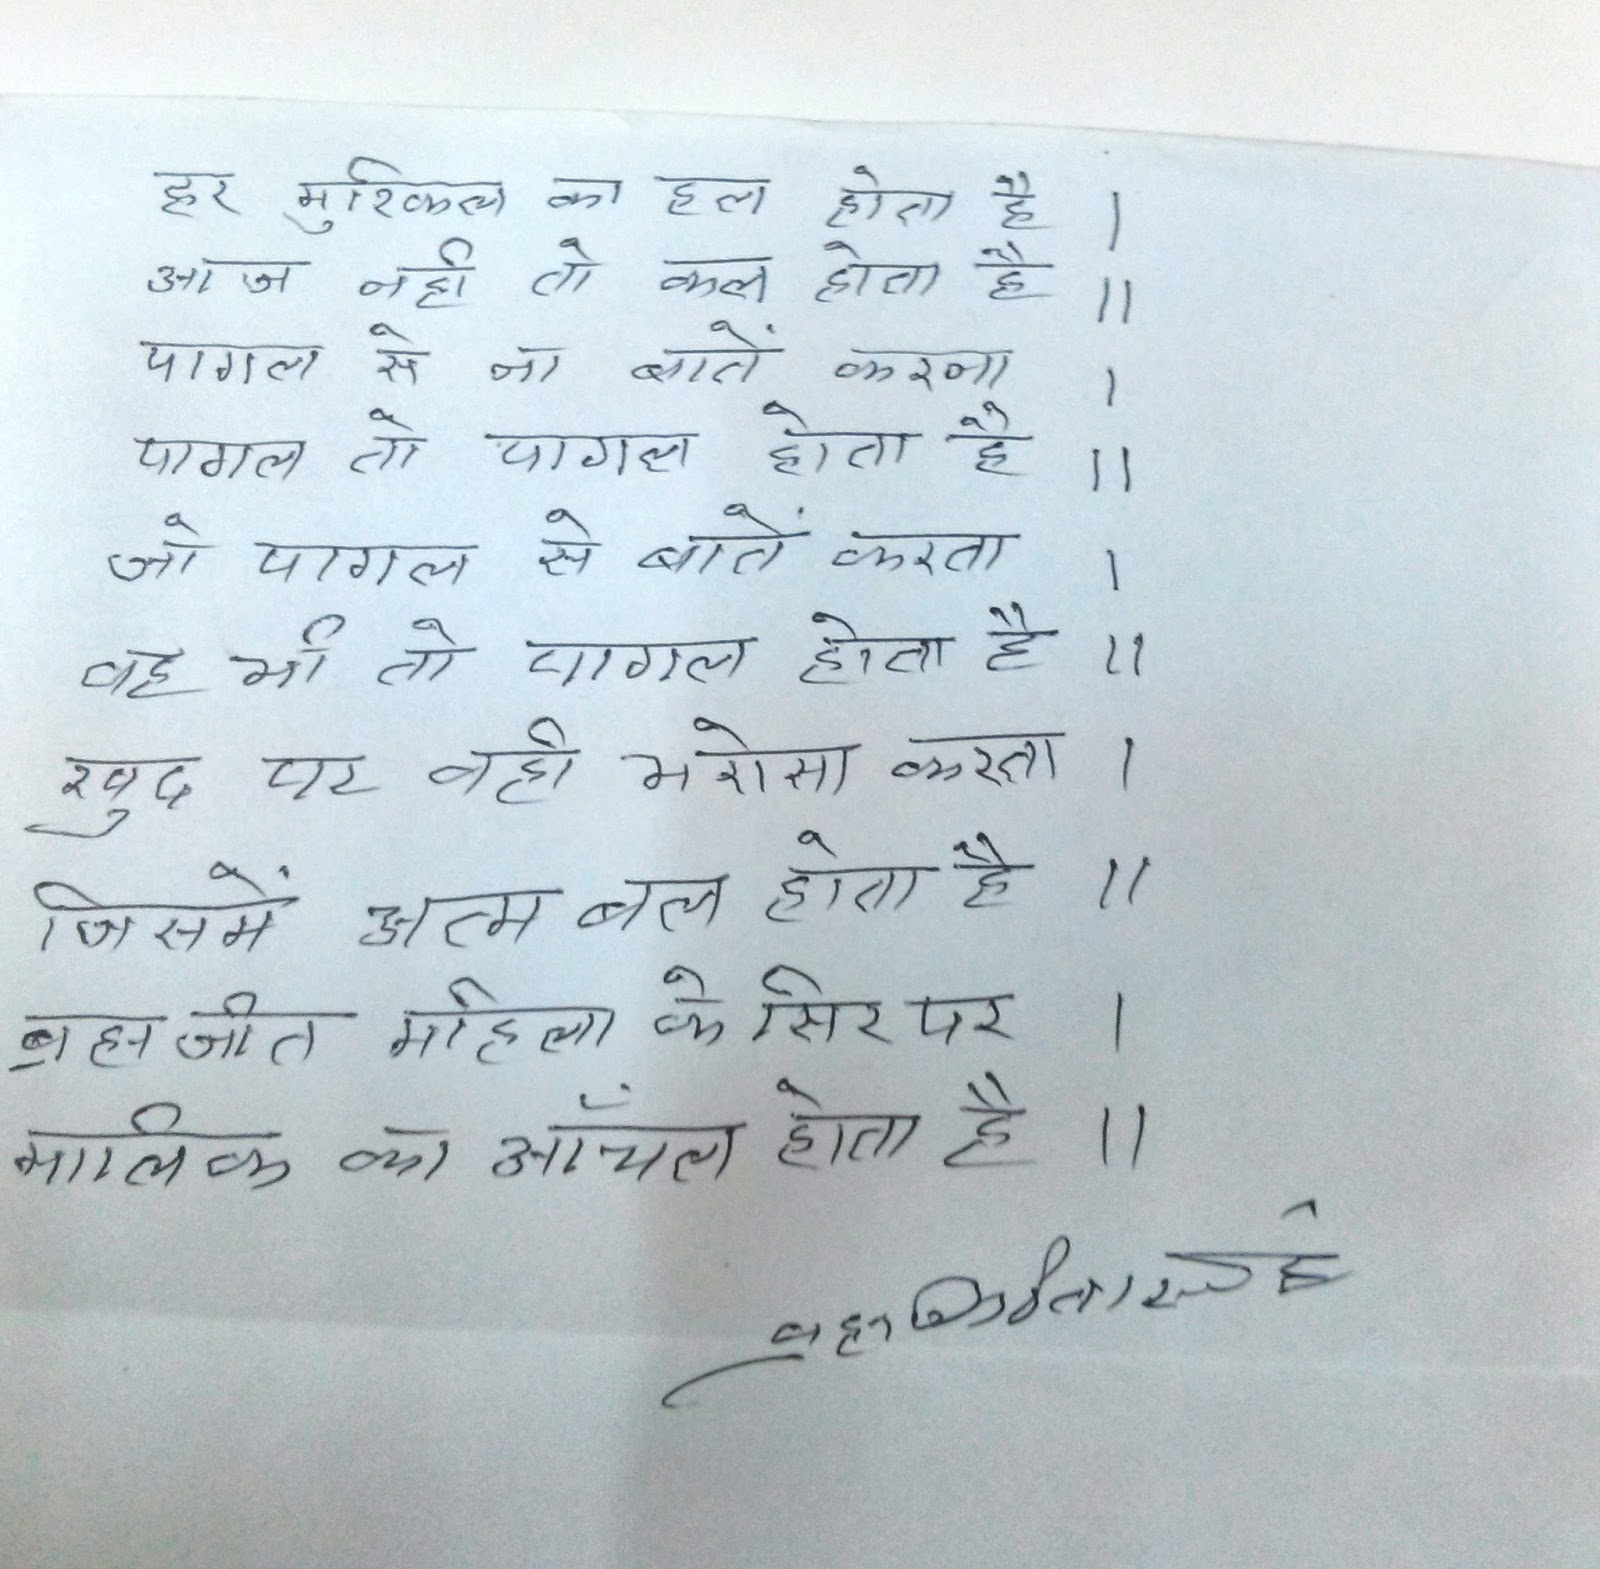 हर मुश्किल का हल होता है ।
आज नही तो कल होता है ॥
पागल से ना बातें करना ।
पागल तो पागल होता है ॥
जो पागल से बातें करता ।
वह भी तो पागल होता है ॥
खुद पर वही भरोसा करता ।
जिसमें अत्म बल होता है ॥
ब्रह्मजीत महिला के सिर पर ।
मालिक का आँचल होता है ॥